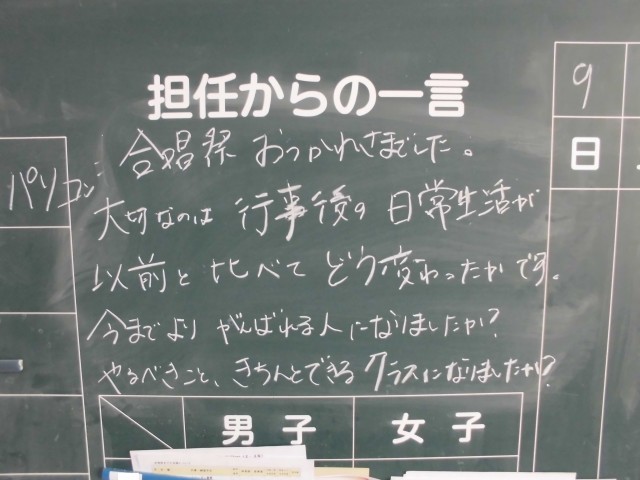 担任からの一言
合唱祭 おつかれさまでした。
大切なのは 行事後の 日常生活が
以前と 比べて どう変わったかです。
今までより がんばれる人になりましたか?
やるべきこと、きちんとできるクラスになりましたか?
パソコン
9
日
男子 女子